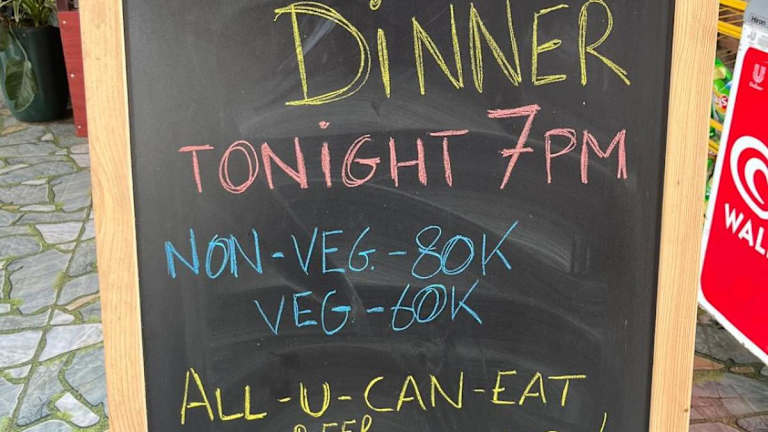 DINNER
TONIGHT 7PM
NON-VEG-80K
VEG-60K
ALL-U-CAN-EAT
WALL